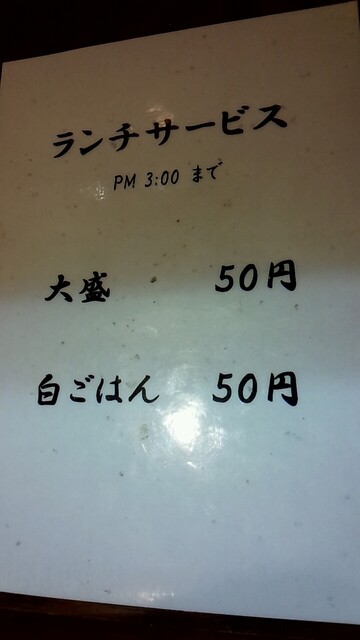 ランチサービス
PM 3:00 まで
大盛 50円
白ごはん 50円